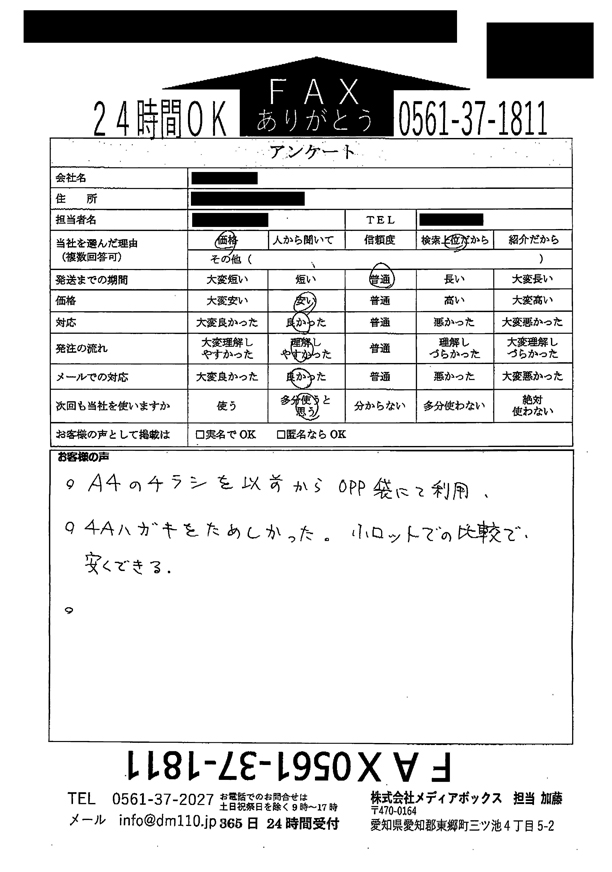 FAX
ありがとう
24時間OK 0561-37-1811
アンケート
会社名
住 所
担当者名 TEL
当社を選んだ理由 価格 人から聞いて 信頼度 検索上位だから 紹介だから
（複数回答可） その他（ ）
発送までの期間 大変短い 短い 普通 長い 大変長い
価格 大変安い 安い 普通 高い 大変高い
対応 大変良かった 良かった 普通 悪かった 大変悪かった
発注の流れ 大変理解しやすかった 理解しやすかった 普通 理解しづらかった 大変理解しづらかった
メールでの対応 大変良かった 良かった 普通 悪かった 大変悪かった
次回も当社を使いますか 使う 多分使うと思う 分からない 多分使わない 絶対使わない
お客様の声として掲載は □実名でOK □匿名ならOK
お客様の声
○ A4のチラシを以前から OPP袋にて利用、
○ 4Aハガキをためしかった。小ロットでの比較で、
安くできる.
○
FAX0561-37-1811
TEL 0561-37-2027 お電話でのお問合せは
土日祝祭日を除く9時〜17時
メール info@dm110.jp 365日 24時間受付
株式会社メディアボックス 担当 加藤
〒470-0164
愛知県愛知郡東郷町三ツ池4丁目5-2